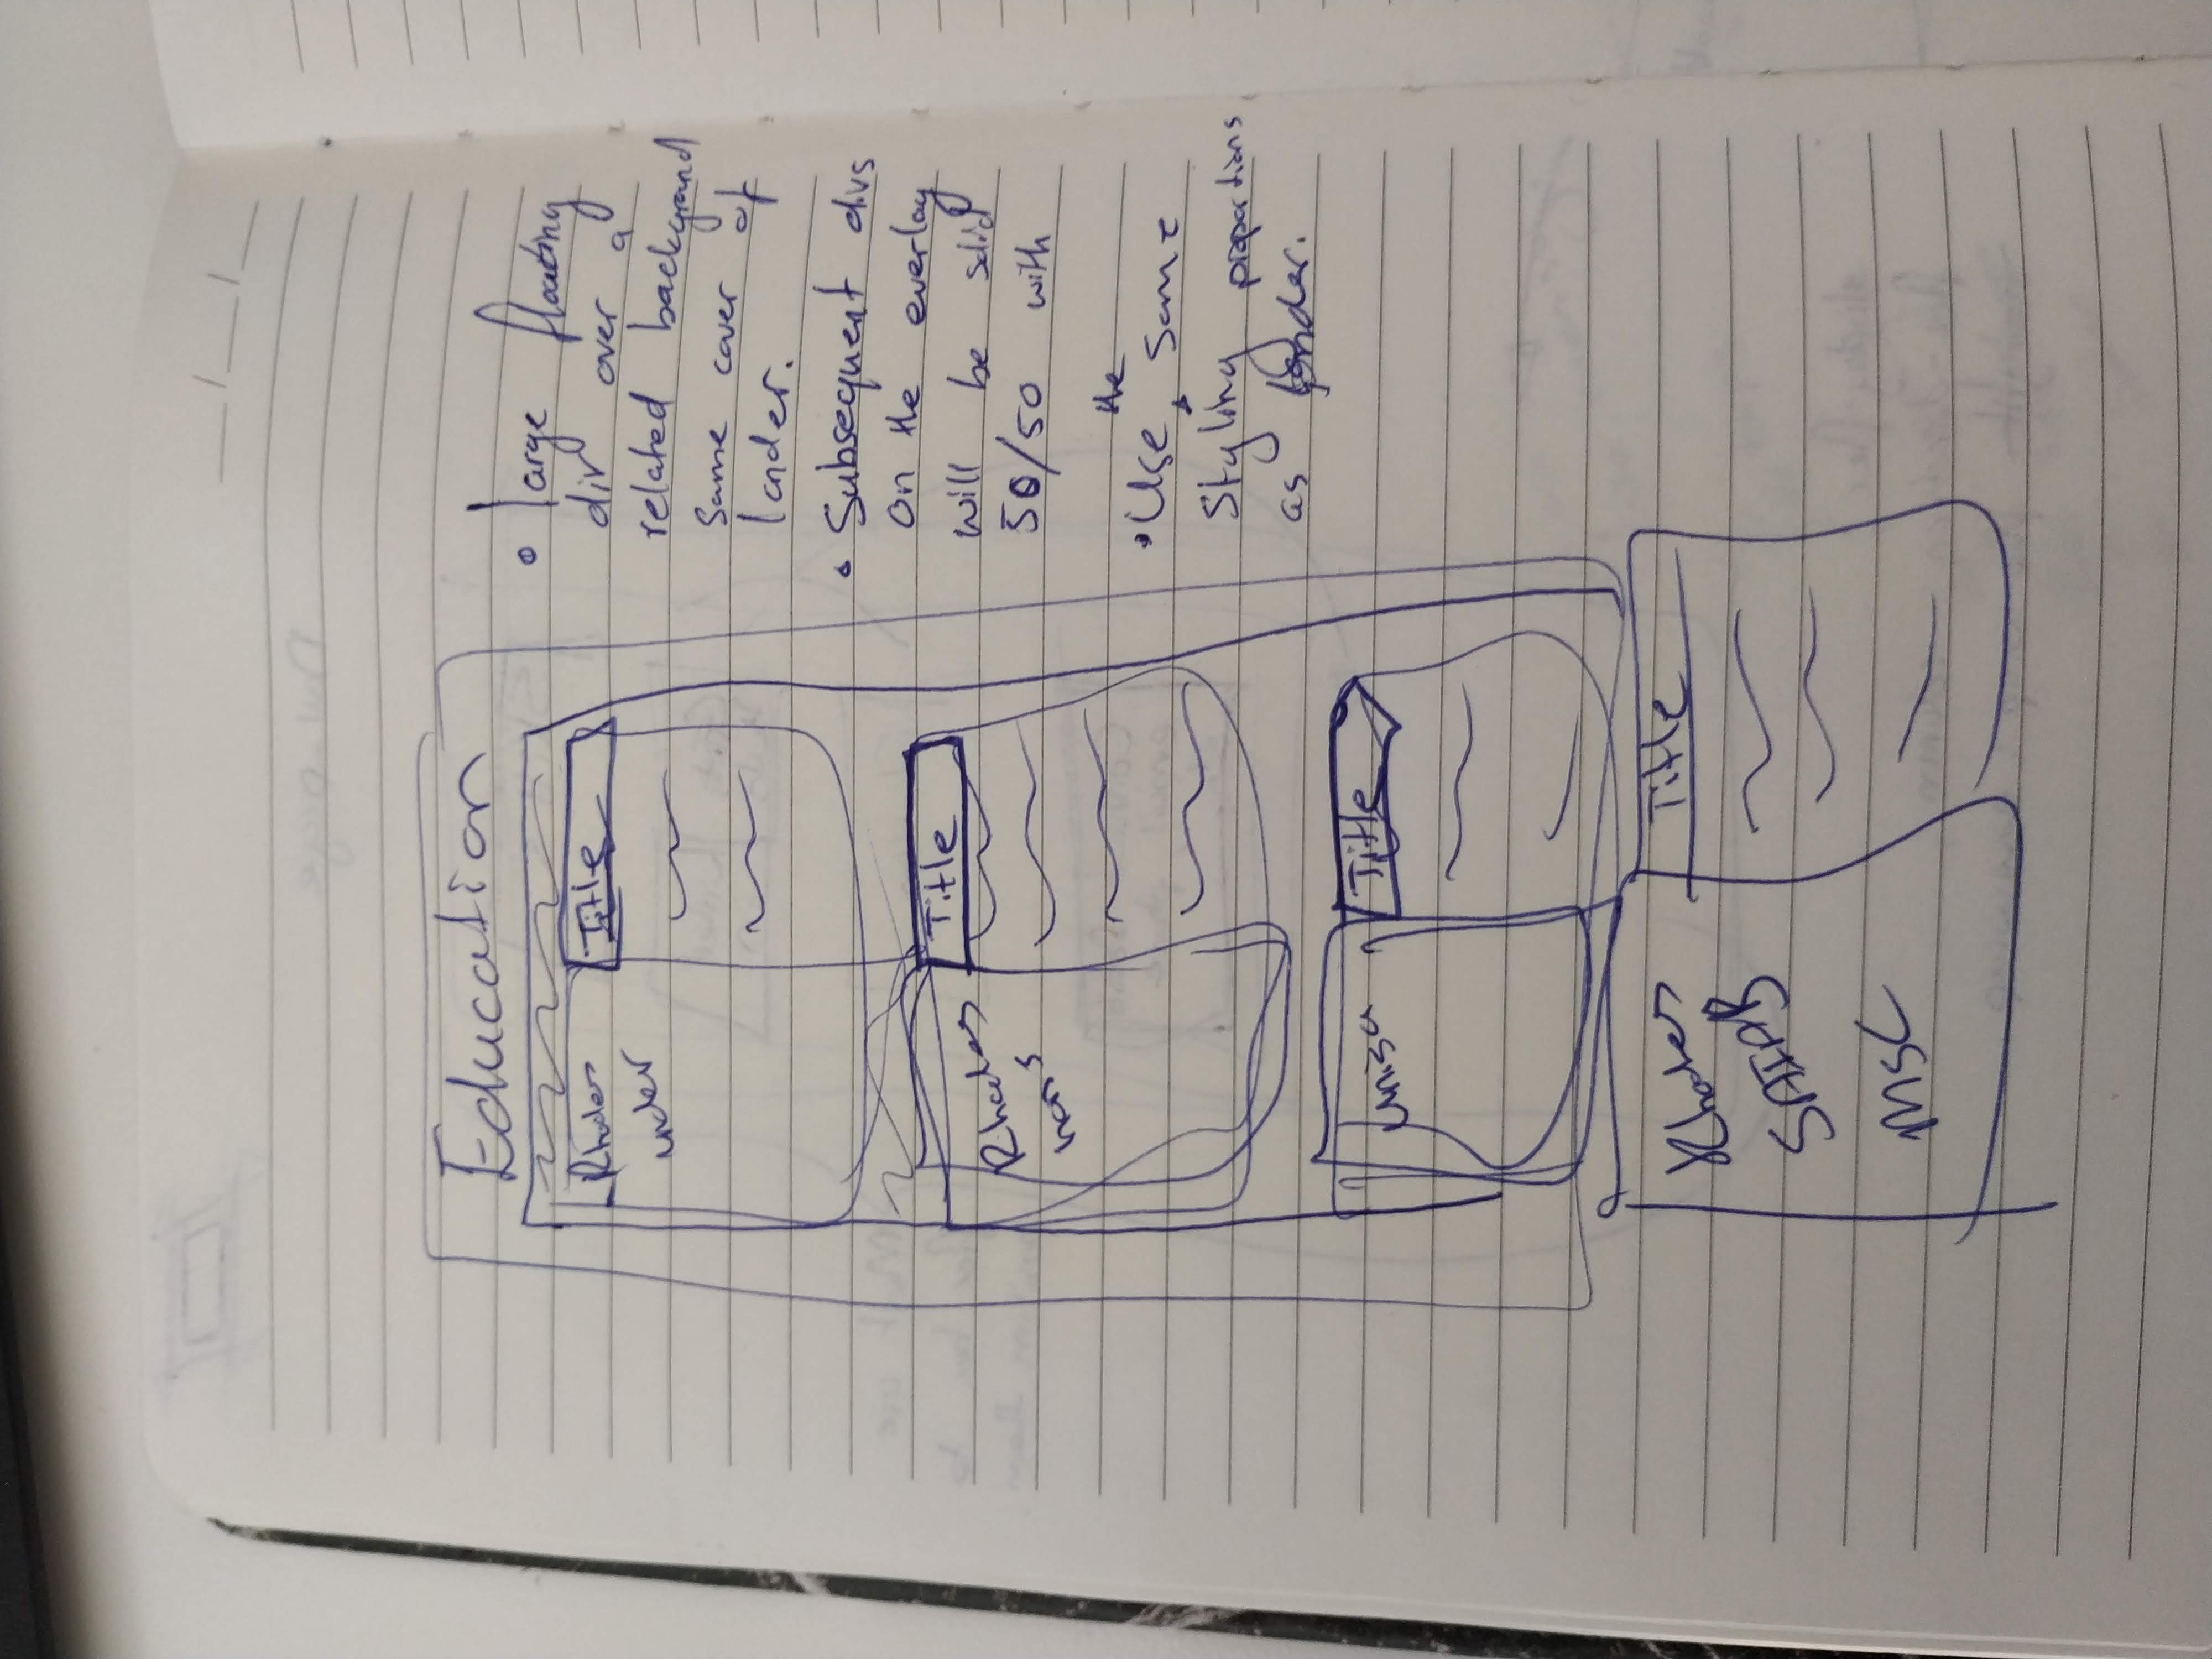 Education
Rhodes
under
Title
Rhodes
hons
Title
Unisa
Title
Rhodes
SAIAB
MSC
Title
• large floating
div over a
related background
same cover of
lander.
• Subsequent divs
on the overlay
will be solid
50/50 with
the
• Use, same
Styling proportions
as lander.